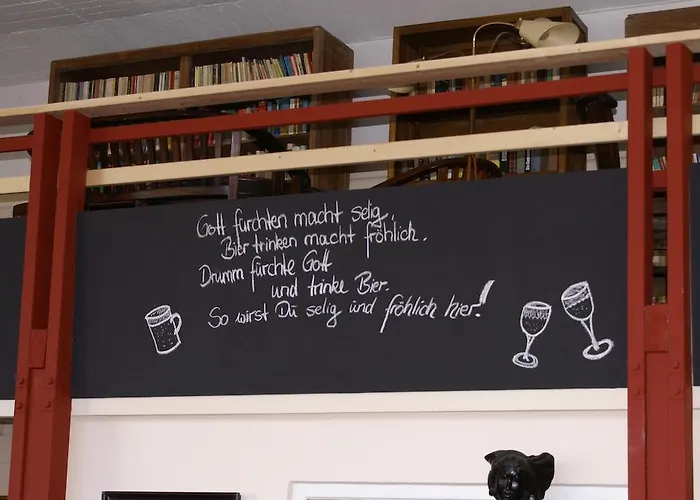 Gott fürchten macht selig,
Bier trinken macht fröhlich.
Drumm fürchte Gott
und trinke Bier.
So wirst Du selig und fröhlich hier!